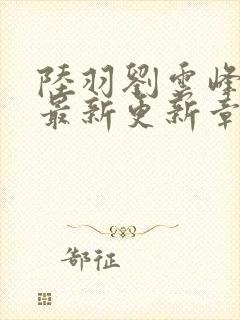 陸羽劉雲峰
最新更新章
郜征